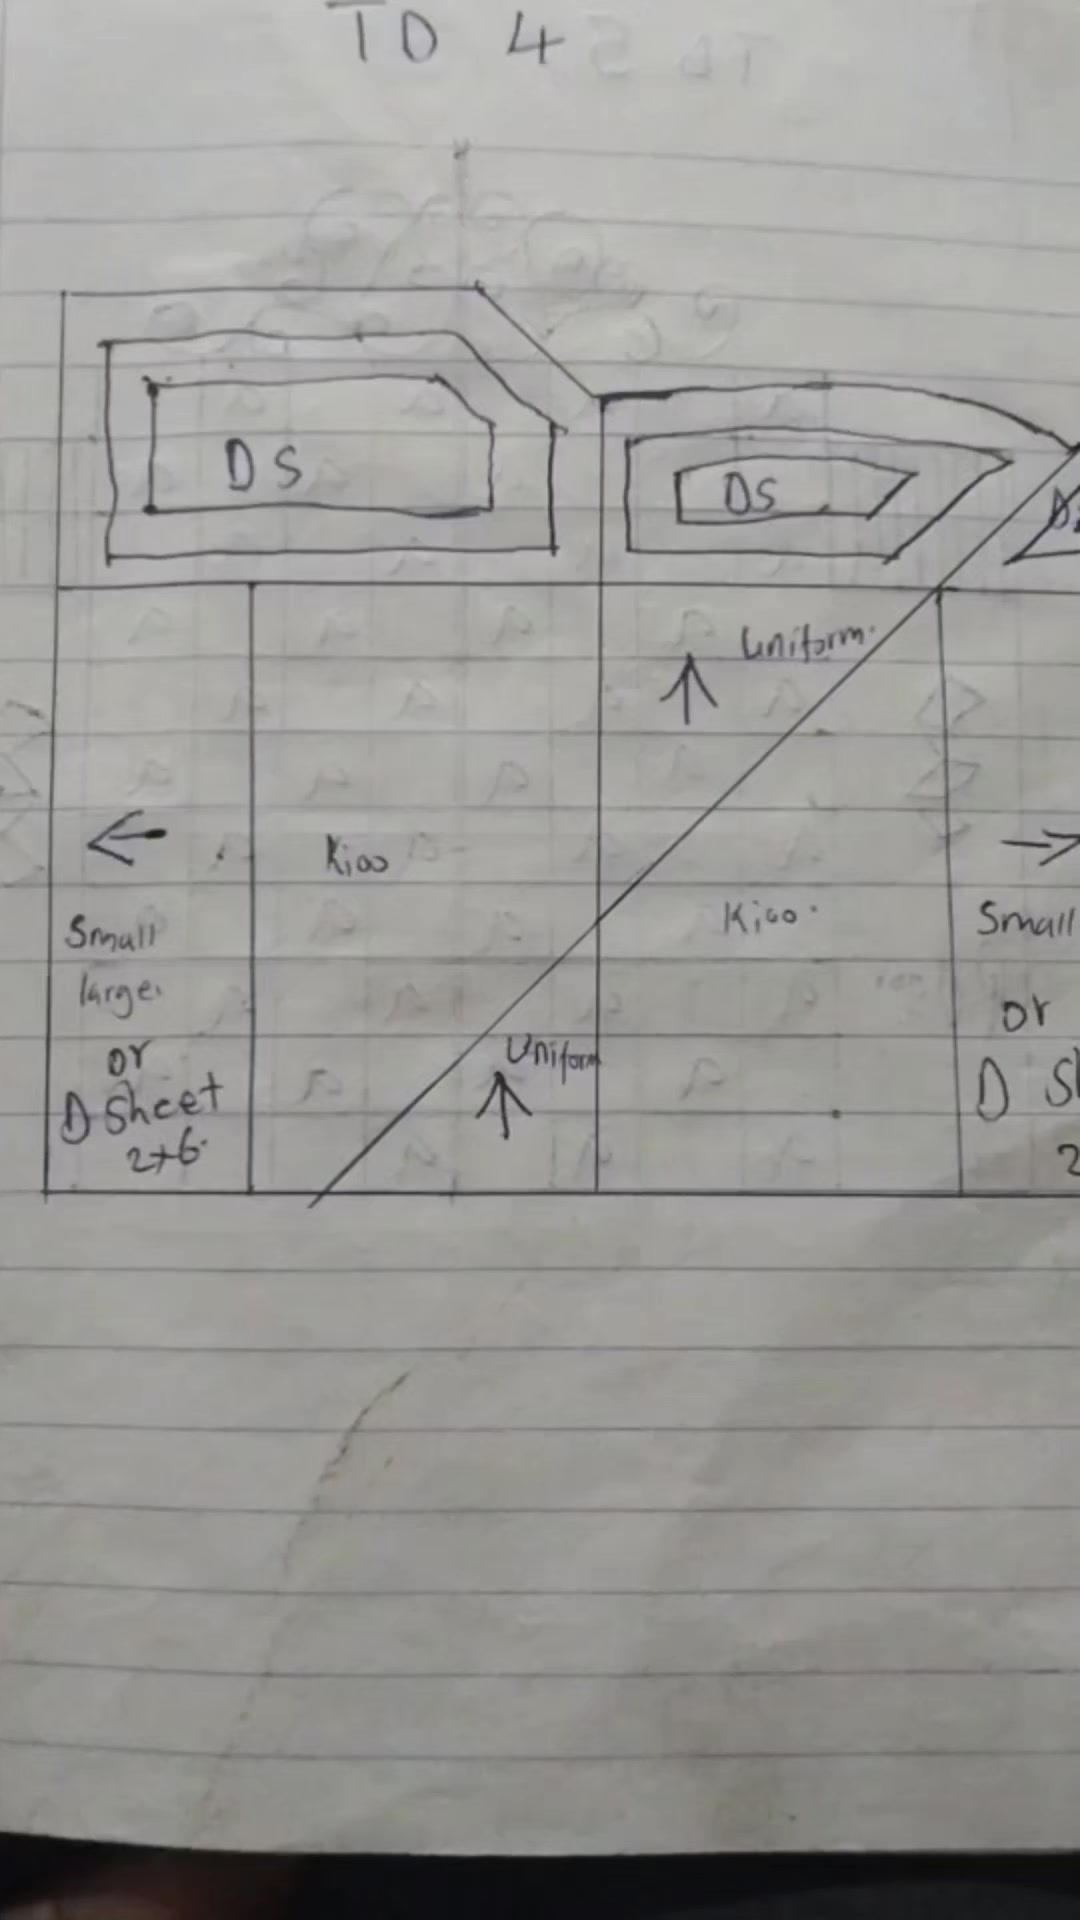 TD 4
DS
DS
Uniform.
Kioo
Kioo.
Small
large.
or
D Sheet
2+6.
Uniform
Small
or
D S
2